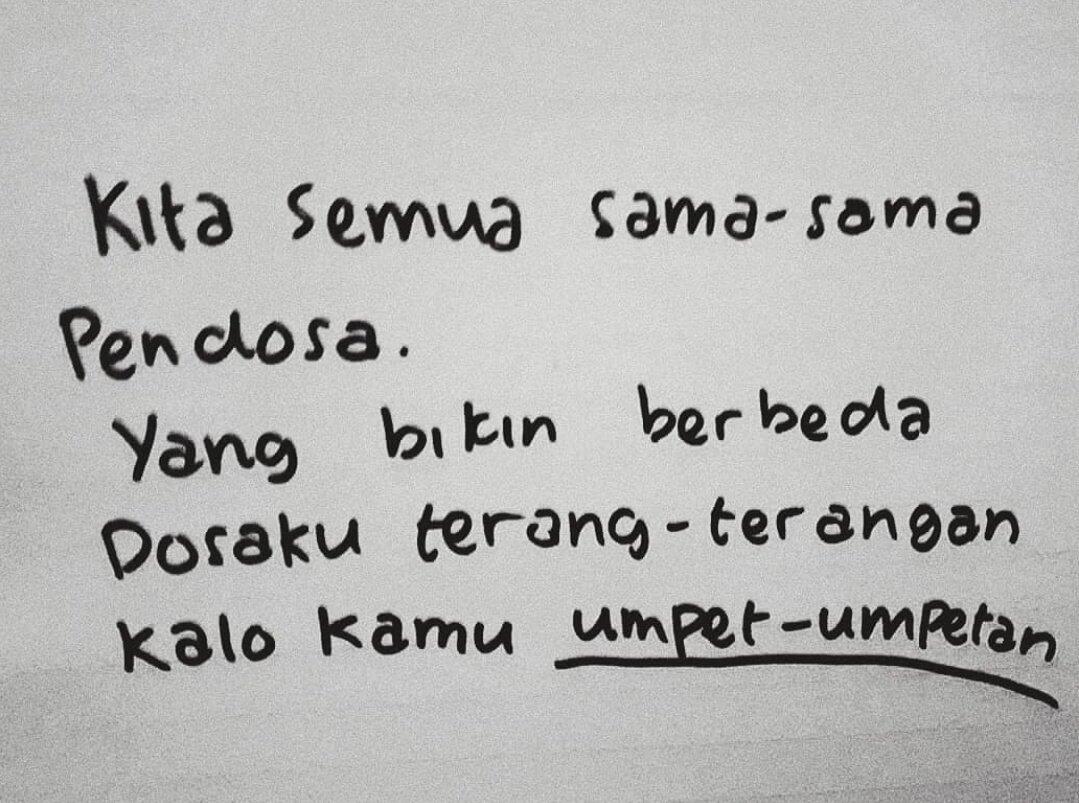 Kita semua sama-sama
Pendosa.
Yang bikin berbeda
Dosaku terang-terangan
Kalo kamu umpet-umpetan